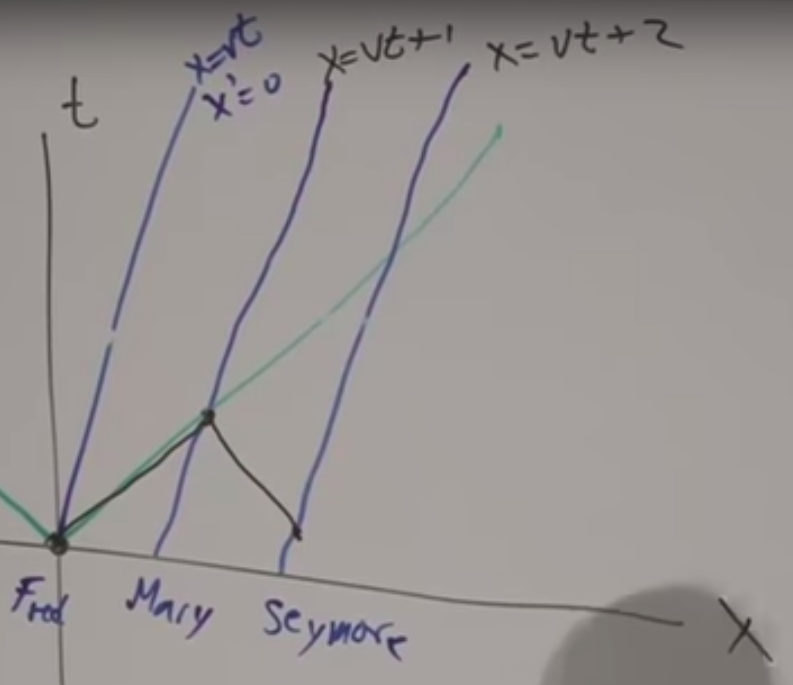 t
x=vt
x'=0
x=vt+1
x=vt+2
Fred
Mary
Seymore
X